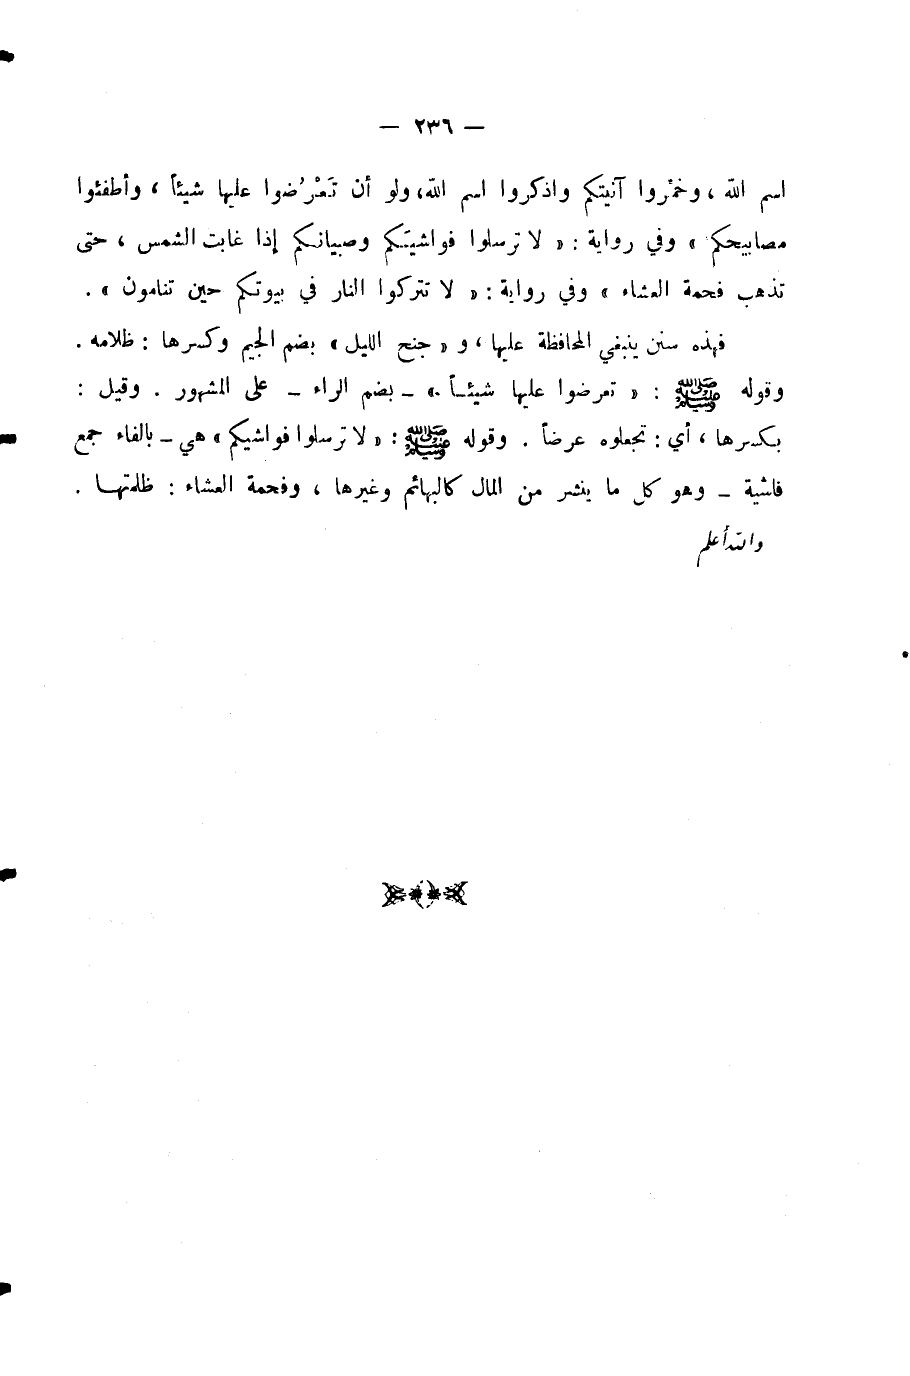 — ٢٣٦ —
اسم الله ، وخمّروا آنيتكم واذكروا اسم الله، ولو أن تَعْرُضوا عليها شيئاً ، وأطفئوا
مصابيحكم » وفي رواية : « لا ترسلوا فواشيَكم وصبيانكم إذا غابت الشمس ، حتى
تذهب فحمة العشاء » وفي رواية : « لا تتركوا النار في بيوتكم حين تنامون » .
فهذه سنن ينبغي المحافظة عليها ، و « جنح الليل » بضم الجيم وكسرها : ظلامه .
وقوله ﷺ : « تعرضوا عليها شيئـاً » ـ بضم الراء ـ على المشهور . وقيل :
بكسرها ، أي : تجعلوه عرضاً . وقوله ﷺ : « لا ترسلوا فواشيكم » هي ـ بالفاء جمع
فاشية ـ وهو كل ما ينشر من المال كالبهائم وغيرها ، وفحمة العشاء : ظلمتهـا .
والله أعلم